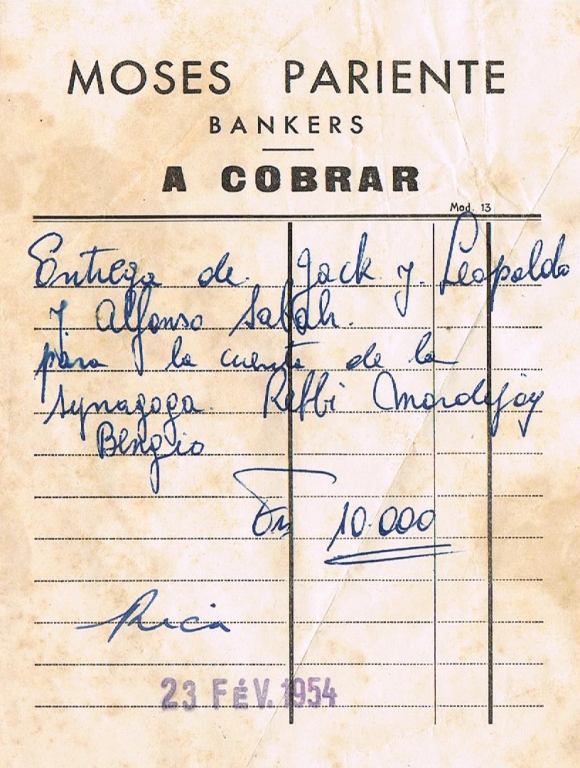 MOSES PARIENTE
BANKERS
A COBRAR
Mod. 13
Entrega de Jack y Leopoldo
y Alfonso Sabah.
para la cuenta de la
synagoga Rebbi Mordejay
Bengio
10.000
23 FÉV. 1954